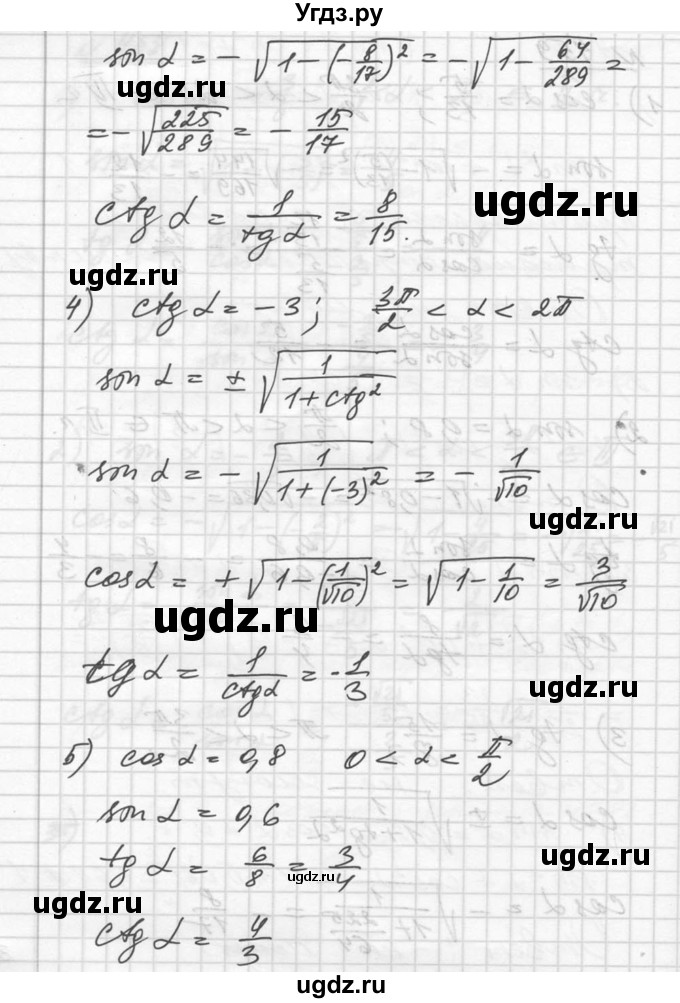 Угдз.ру
sin α = - √(1 - (-8/17)²) = -√(1 - 64/289) =
ugdz.ru
= -√(225/289) = - 15/17
ugdz.ru
ctg α = 1/tg α = 8/15.
ugdz.ru
4) ctg α = -3; 3π/2 < α < 2π
sin α = ± √(1/(1 + ctg²))
ugdz.ru
sin α = - √(1/(1 + (-3)²)) = - 1/√10
cos α = + √(1 - (1/√10)²) = √(1 - 1/10) = 3/√10
ugdz.ru
tg α = 1/ctg α = -1/3
ugdz.ru
5) cos α = 0,8 0 < α < π/2
sin α = 0,6
tg α = 6/8 = 3/4
ugdz.ru
ugdz.ru
ugdz.ru
ctg α = 4/3
ugdz.ru
ugdz.ru